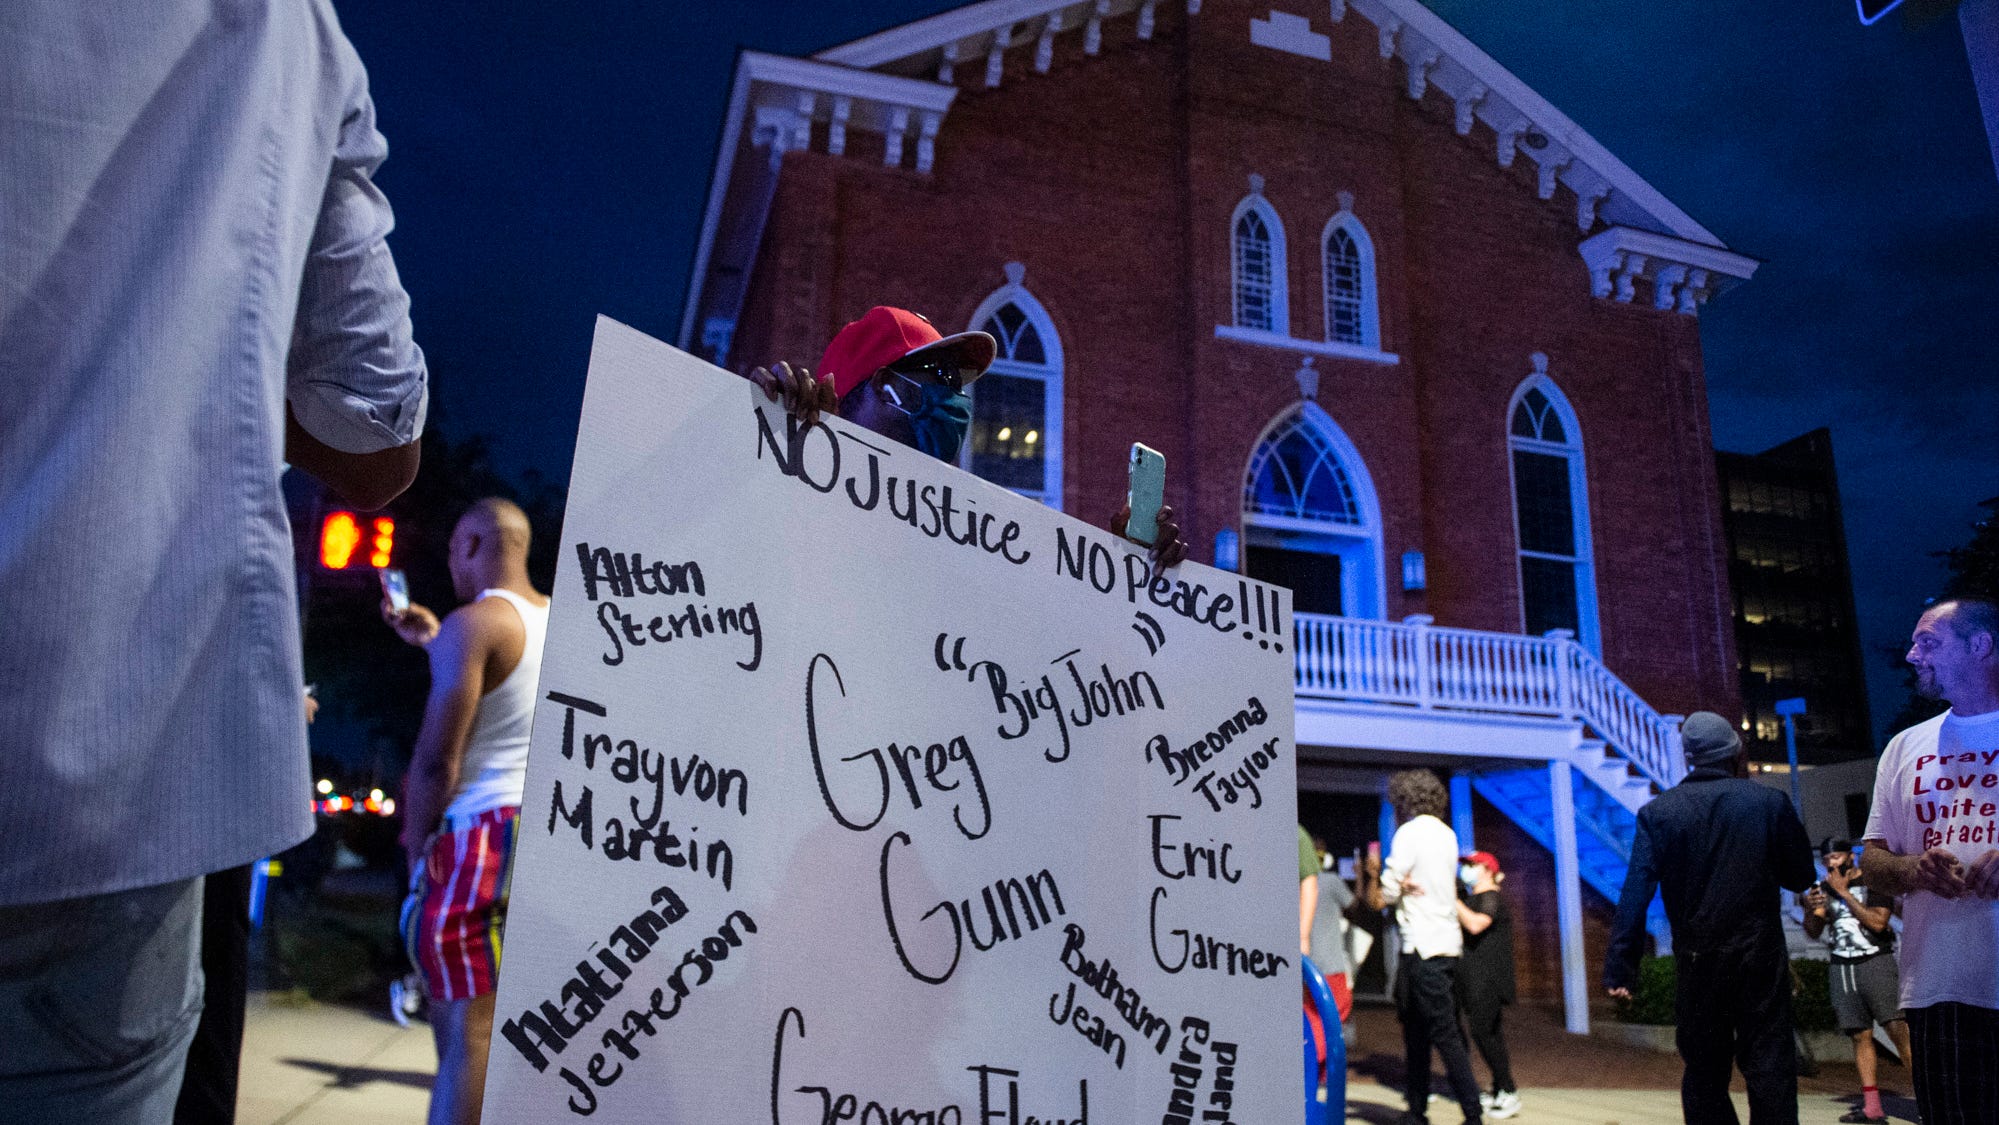 NO Justice NO Peace!!!
Alton
Sterling
"Big John"
Greg
Gunn
Trayvon
Martin
Breonna
Taylor
Eric
Garner
Atatiana
Jefferson
Botham
Jean
George Floyd
andra
land
Pray
Love
Unite
Get act